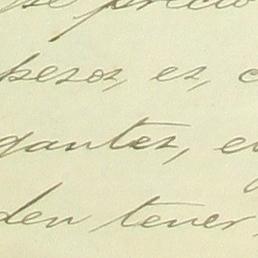 se precio
pesos, es, c
gantes, e
den tener,